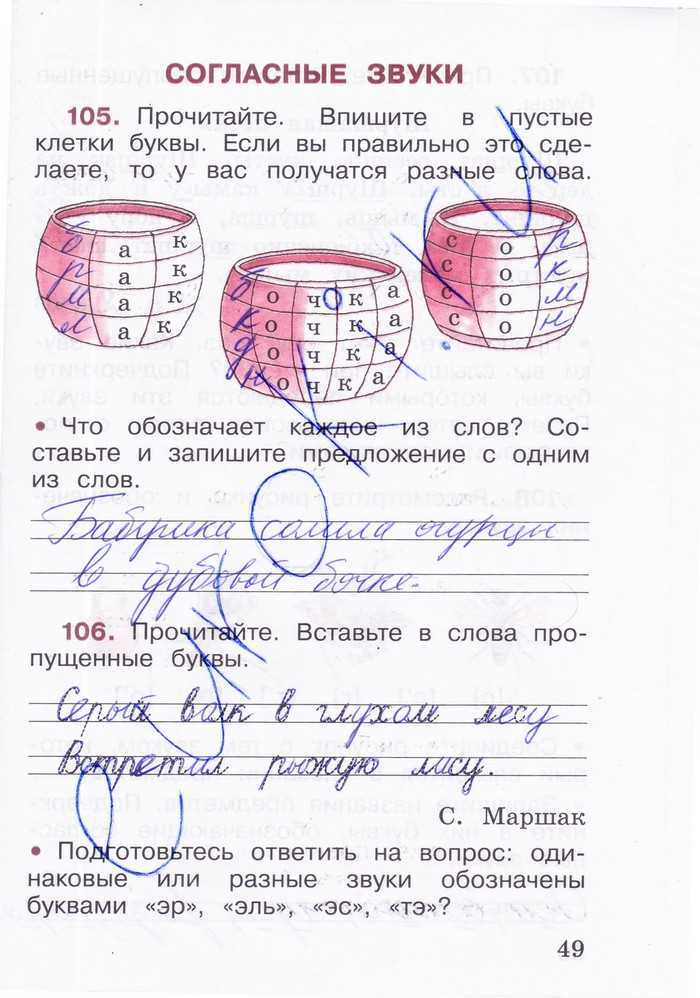 СОГЛАСНЫЕ ЗВУКИ
105. Прочитайте. Впишите в пустые
клетки буквы. Если вы правильно это сде-
лаете, то у вас получатся разные слова.
б а к
р а к
м а к
л а к
б о ч к а
к о ч к а
д о ч к а
н о ч к а
с о р
с о к
с о м
с о н
• Что обозначает каждое из слов? Со-
ставьте и запишите предложение с одним
из слов.
Бабушка солила огурцы
в дубовой бочке.
106. Прочитайте. Вставьте в слова про-
пущенные буквы.
Серый волк в глухом лесу
Встретил рыжую лису.
С. Маршак
• Подготовьтесь ответить на вопрос: оди-
наковые или разные звуки обозначены
буквами «эр», «эль», «эс», «тэ»?
49